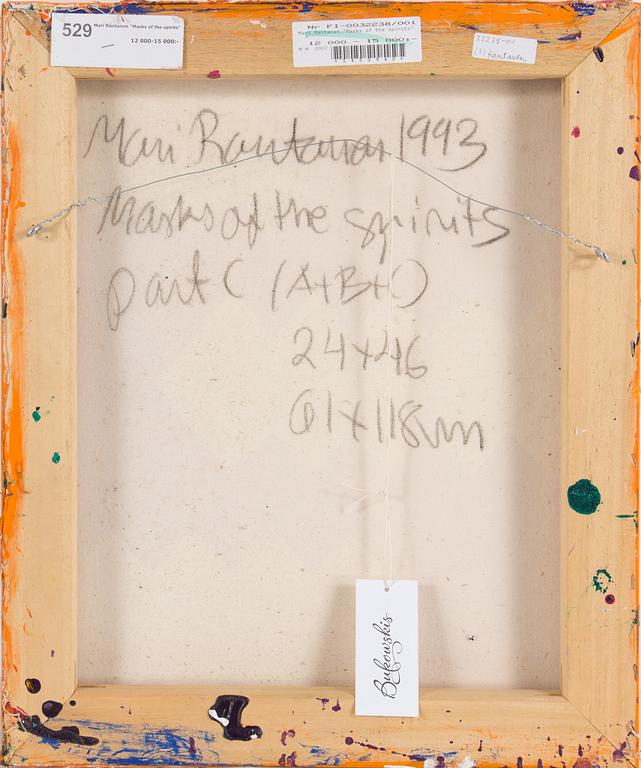 529 Mari Rantanen "Masks of the spirits"
12 000-15 000:-
Nr FI-0032238/001
Mari Rantanen "Masks of the spirits"
12 000 - 15 000:-
32238-01
(3) Rantanen
Mari Rantanen 1993
Masks of the spirits
part C (A+B+C)
24x46
61x118cm
Bukowskis